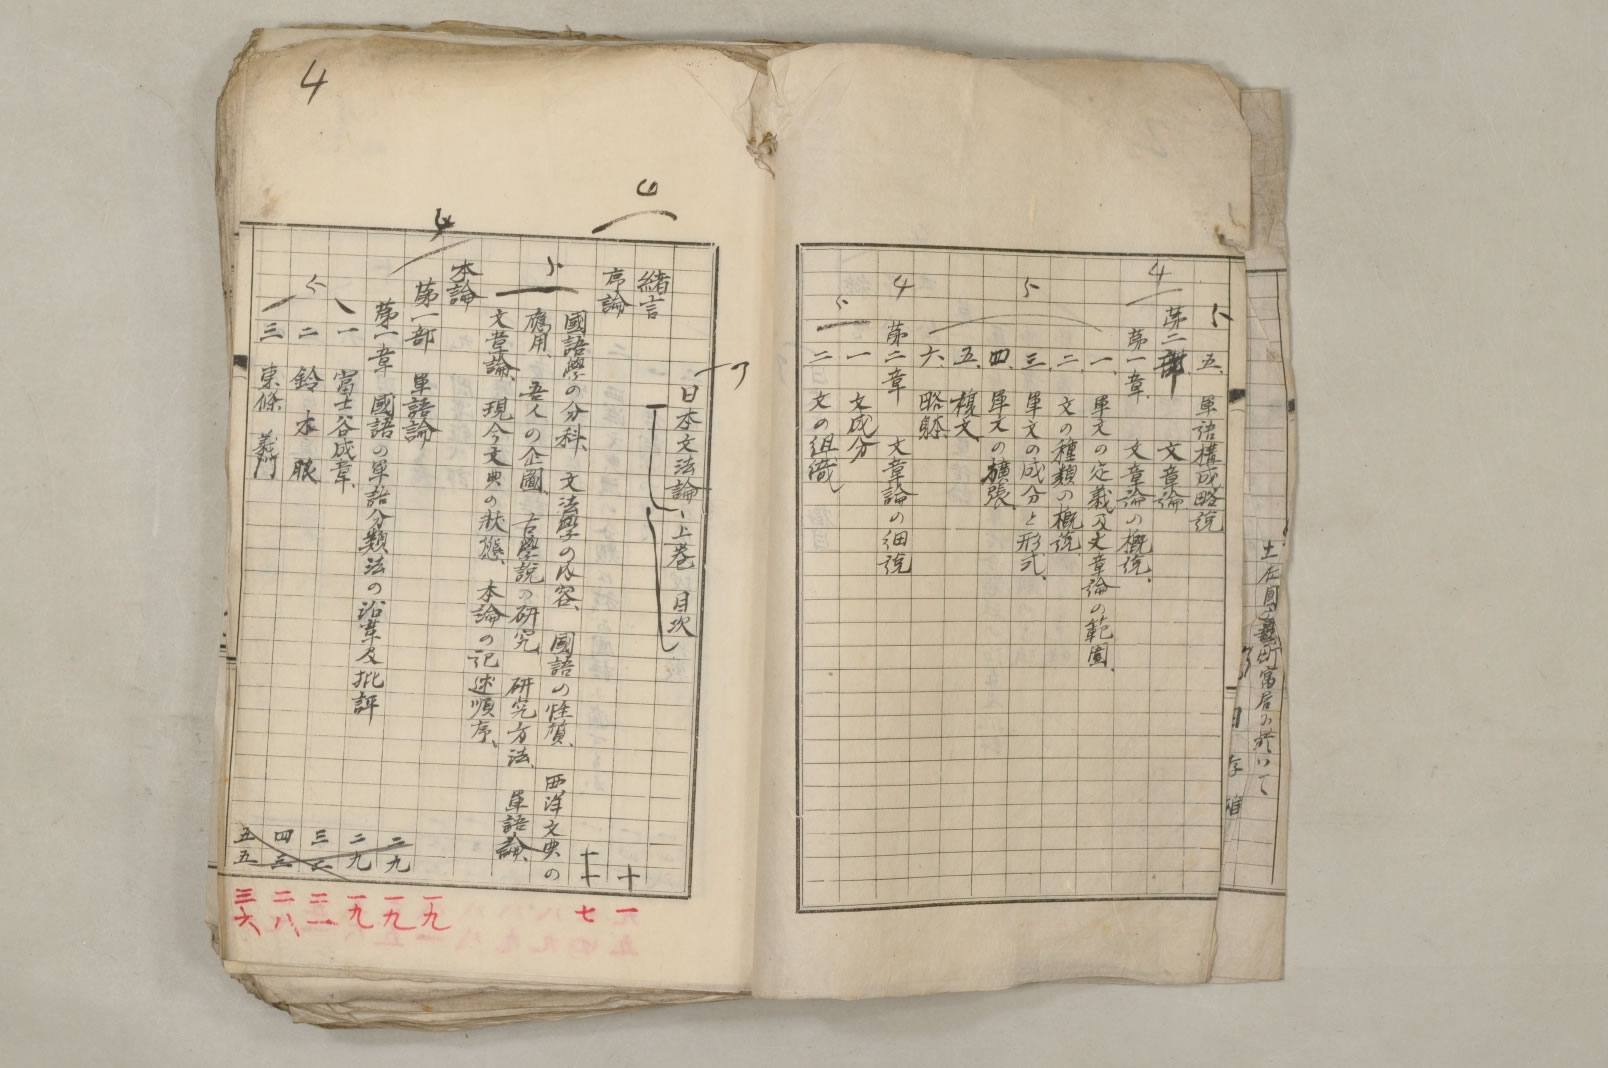 五、單語構成略説
5
第二部 文章論
第一章 文章論の概説、
4
一、單文の定義及文章論の範圍、
二、文の種類の概説
三、單文の成分と形式、
5
四、單文の擴張、
五、複文、
六、略躰、
第二章 文章論の細説
4
一、文成分
二、文の組織
5
4
日本文法論、上巻 目次
緒言
6
序論 十
國語學の分科、文法學の内容、國語の性質、西洋文典の
應用、吾人の企圖、古學説の研究、研究方法、單語論、
文章論、現今文典の狀態、本論の記述順序、
5
本論
第一部 單語論
4
第一章 國語の單語分類法の沿革及批評 二九
一 富士谷成章、 二九
二 鈴木朖
三 東條義門
5
四三
五五
一
七
一九
一九
一九
二一
二八
三六